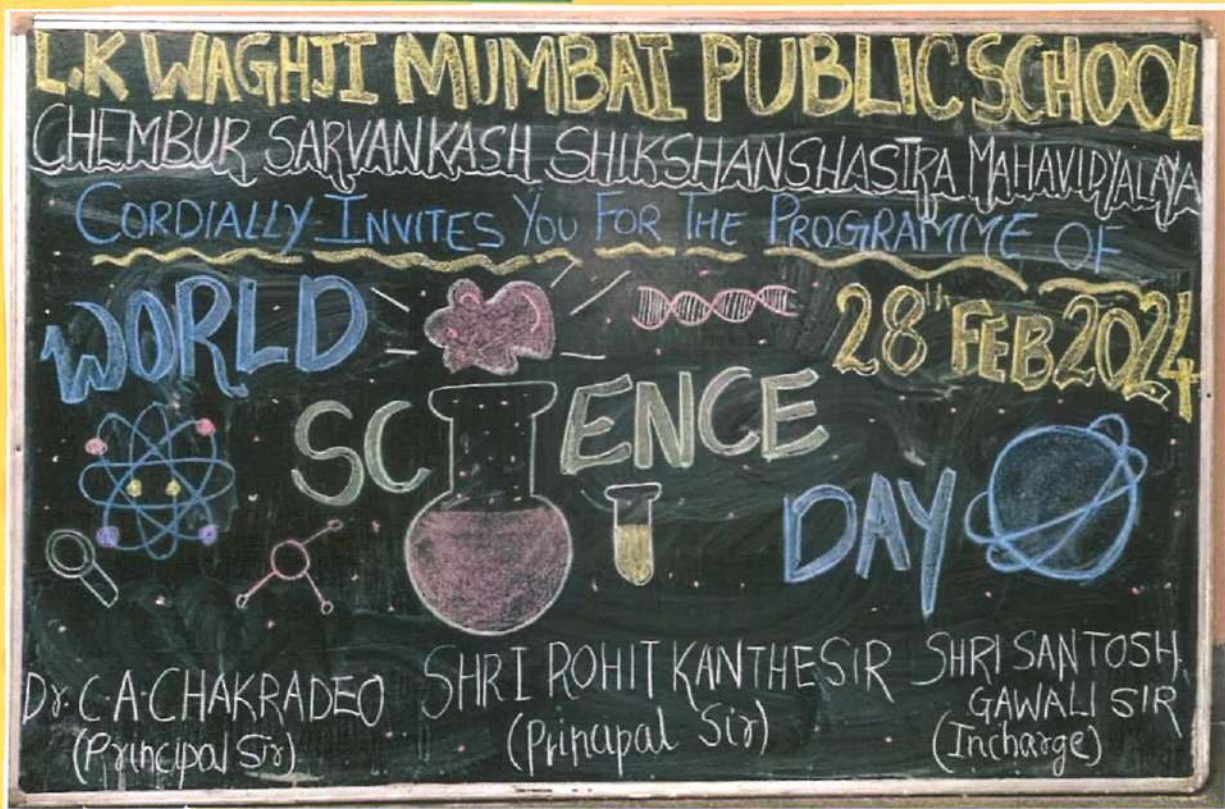 L.K WAGHJI MUMBAI PUBLIC SCHOOL
CHEMBUR SARVANKASH SHIKSHANSHASTRA MAHAVIDYALAYA
CORDIALLY INVITES YOU FOR THE PROGRAMME OF
WORLD
28th FEB 2024
SCIENCE
DAY
Dr. C.A. CHAKRADEO
(Principal Sir)
SHRI ROHIT KANTHE SIR
(Principal Sir)
SHRI SANTOSH.
GAWALI SIR
(Incharge)